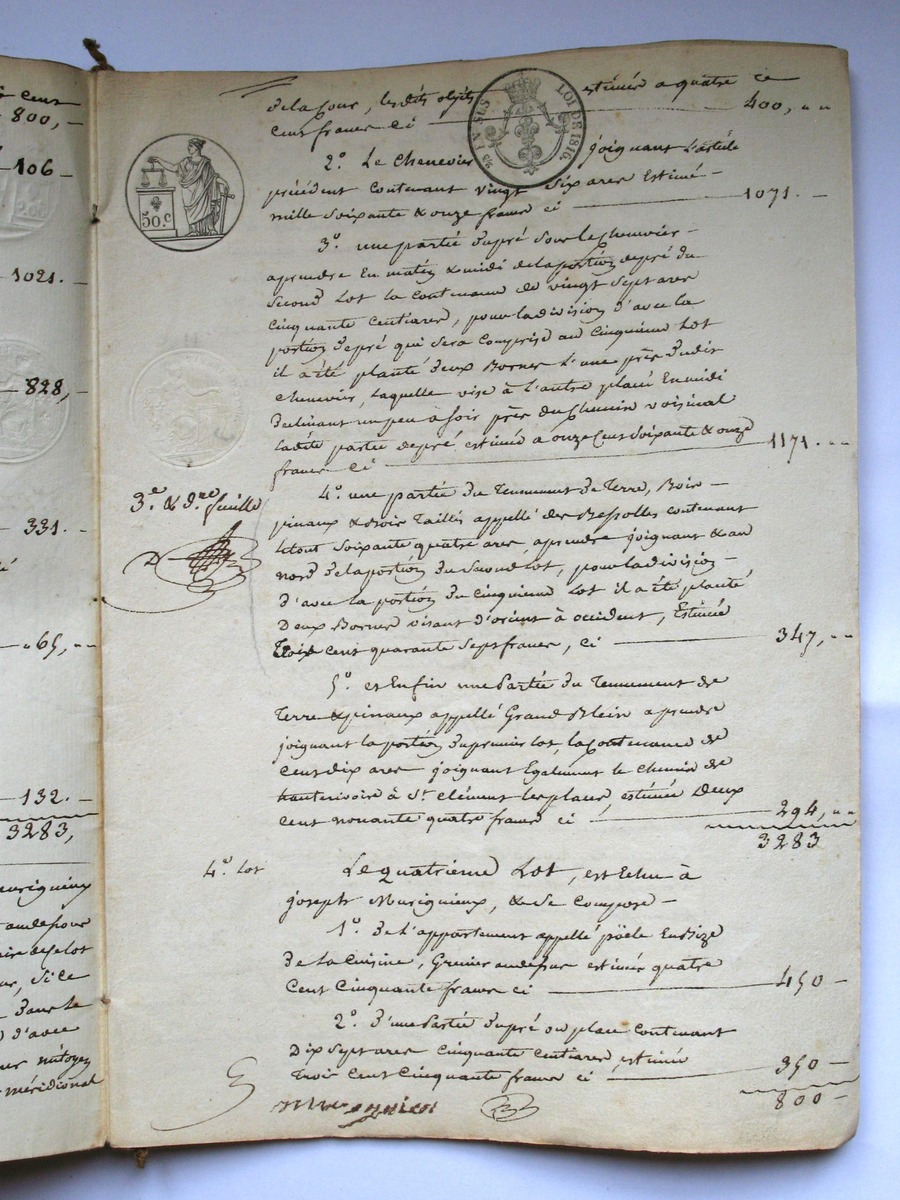 cens
800, -
106 -
1021. -
828, -
331. -
65, -
132. -
3283,
dans le
d'avec
mitoyen
méridional
50.c
LOI DE 1816.
de la Cour, les dits objets estimés a quatre
Cent francs Ci 400, " "
2.° Le Chenevier joignant L'article
précédent Contenant vingt Six ares Estimé -
mille Soixante & onze francs Ci 1071. -
3.° une partie du pré Sous le Chenevier -
a prendre En matin & midi de la portion de pré du
Second Lot la Contenance de vingt Sept ares
Cinquante Centiares, pour la division d'avec la
portion de pré qui Sera Comprise au Cinquième Lot
il a été planté deux Bornes L'une près du dit
Chenevier, Laquelle vise à L'autre placée En midi
declinant un peu à Soir près du Chemin voisinal
Ladite partie de pré estimée a onze Cent Soixante & onze
francs Ci 1171. " "
3.e & d.re feuille
4.° une partie du Tennement de Terre, Bois -
pinaux & Bois Taillis appellé des Bessolles Contenant
Le tout Soixante quatre ares, a prendre joignant & au
nord de la portion du Second Lot, pour la division -
d'avec la portion du Cinquième Lot il a été planté
Deux Bornes visant d'orient à occident, Estimée
Trois Cent quarante Sept francs, Ci 347, " "
5.° et Enfin une Partie du Tennement de
Terre & pinaux appellé Grand Blein a prendre
joignant la portion du premier Lot, la Contenance de
Cent dix ares joignant Egalement le Chemin de
hauterivoire à S.t Clément les places, estimée Deux
Cent nonante quatre francs Ci 294, " "
3283
4.e Lot
Le quatrième Lot, est Echu à
joseph Murigneux, & Se Compose -
1.° de L'appartement appellé poële En Bize
de La Cuisine, Grenier au dessus estimés quatre
Cent Cinquante francs Ci 450 -
2.° d'une Partie du pré ou place Contenant
Dix Sept ares Cinquante Centiares estimée
Trois Cent Cinquante francs Ci 350 -
800 -